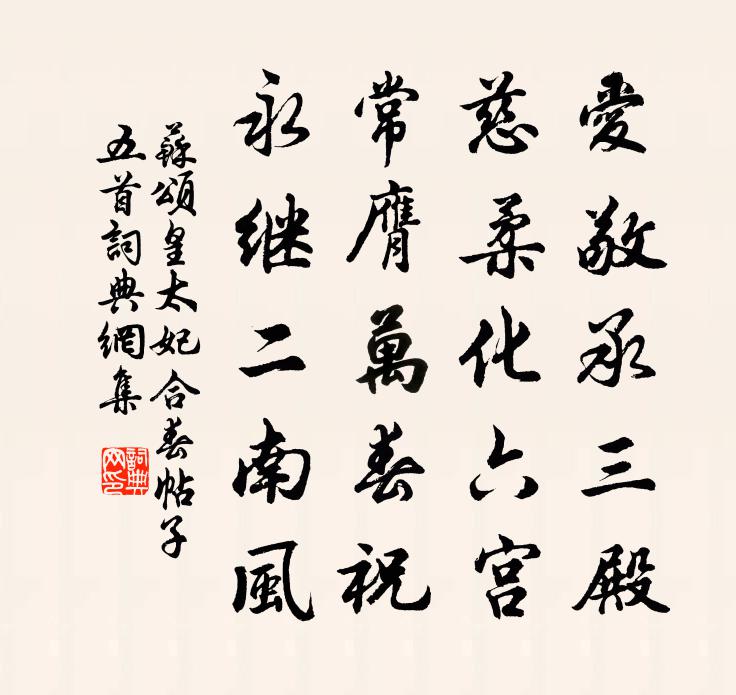 愛敬承三殿
慈柔化六宮
常膺萬春祝
永继二南風
蘇頌皇太妃合春帖子
五首詞典網集
詞典網印